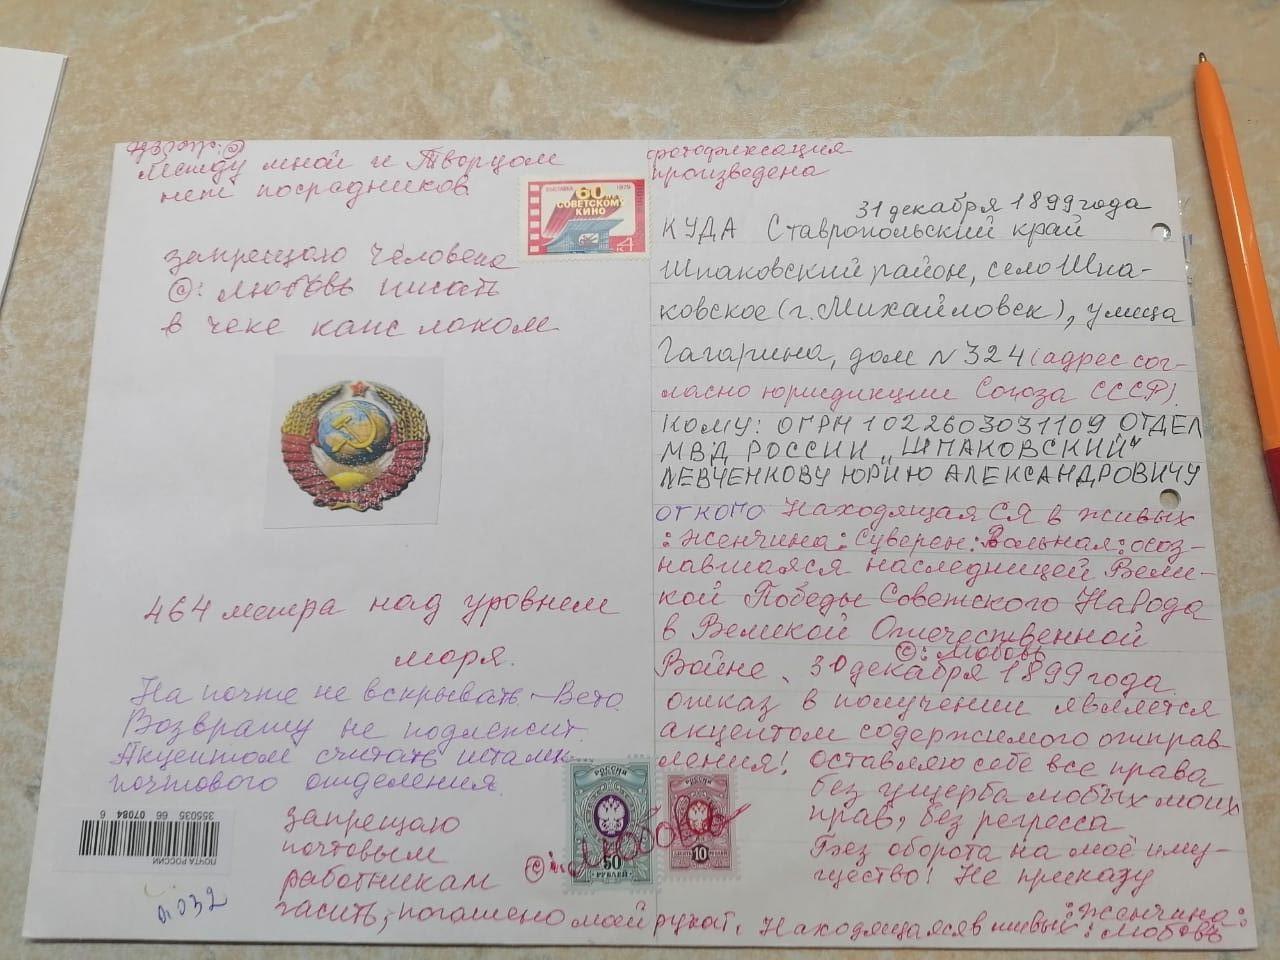 Между мной и Творцом
нет посрадников
фотофиксация
произведена
ВЫСТАВКА
1979
60
СОВЕТСКОМУ
КИНО
4
31 декабря 1899 года
запрещаю Человека
©: Любовь писать
в чеке как
КУДА Ставропольский край
Шпаковский район, село Шпа-
ковское (г. Михайловск), улица
Гагарина, дом N 324 (адрес сог-
ласно юрисдикции Союза СССР).
Кому: ОГРН 1022603031109 ОТДЕЛ
МВД РОССИИ „ШПАКОВСКИЙ"
ЛЕВЧЕНКОВУ ЮРИЮ АЛЕКСАНДРОВИЧУ
ОТ КОГО Находящая СЯ в живых
: женщина: Суверен: Вольная: осоз-
навшаяся наследницей Вели-
кой Победы Советского НаРода
в Великой Отечественной
©: Любовь
Войне. 30 декабря 1899 года
отказ в получении является
акцептом содержимого отправ-
ления! Оставляю себе все права
без ущерба любых моих
прав, без регресса
Без оборота на моё иму-
щество! Не
464 метра над уровнем
моря.
На почте не вскрывать – Вето.
Возврату не подлежит.
Акцептом считать штамп
почтового отделения.
355035 66 07084 6
ПОЧТА РОССИИ
n032
запрещаю
почтовым
работникам
гасить, погашено моей рукой. Находящаяся в живых : женщина:
: Любовь
©: Любовь
РОССИЯ
50
РУБЛЕЙ
РОССИЯ
10
РУБЛЕЙ